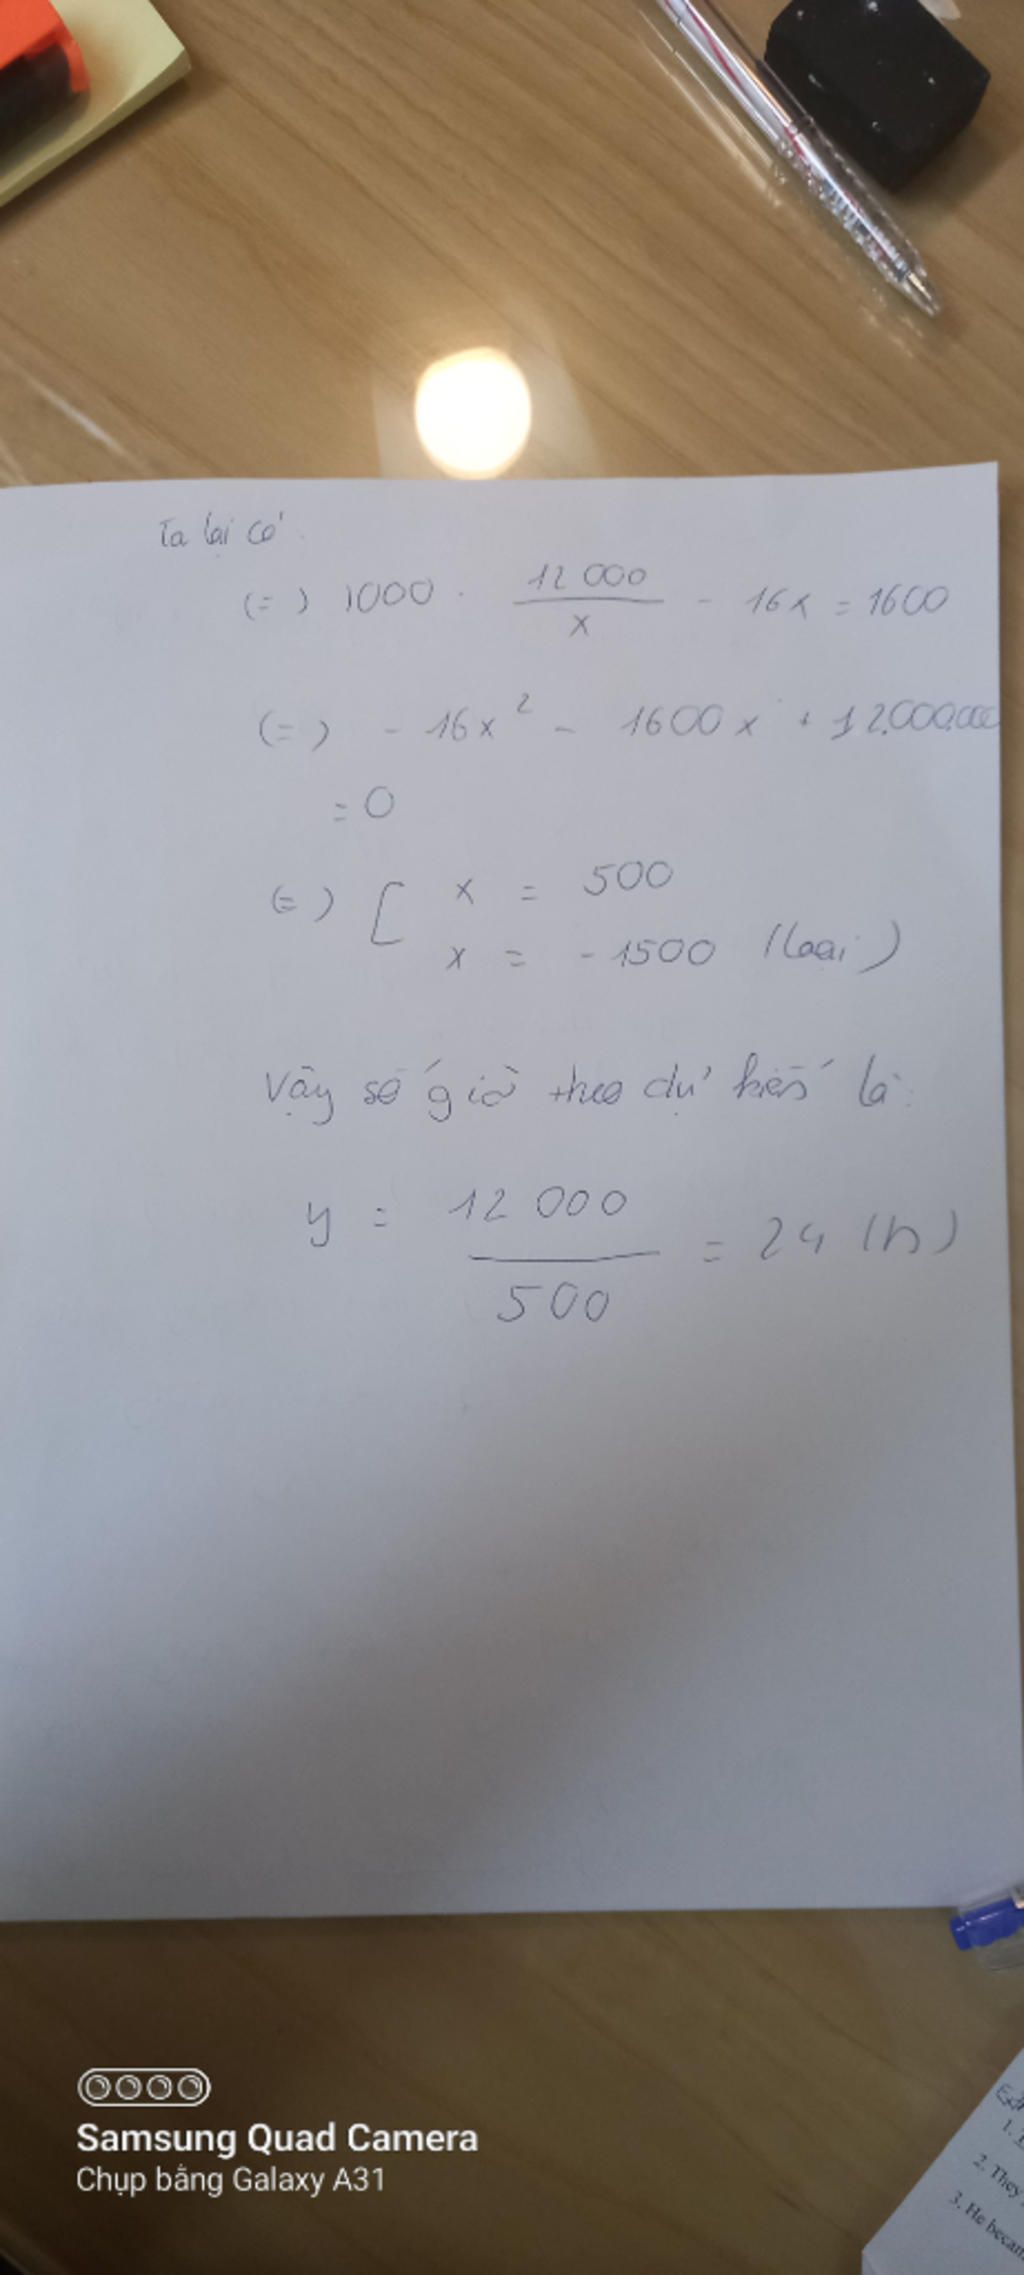 Ta lại có:
(=) 1000 . 12 000 / x - 16x = 1600
(=) - 16x² - 1600x + 12.000.000
= 0
(=) [ x = 500
x = - 1500 (loại)
Vậy số giờ theo dự kiến là:
y = 12 000 / 500 = 24 (h)
Samsung Quad Camera
Chụp bằng Galaxy A31
1.
2. They
3. He becam